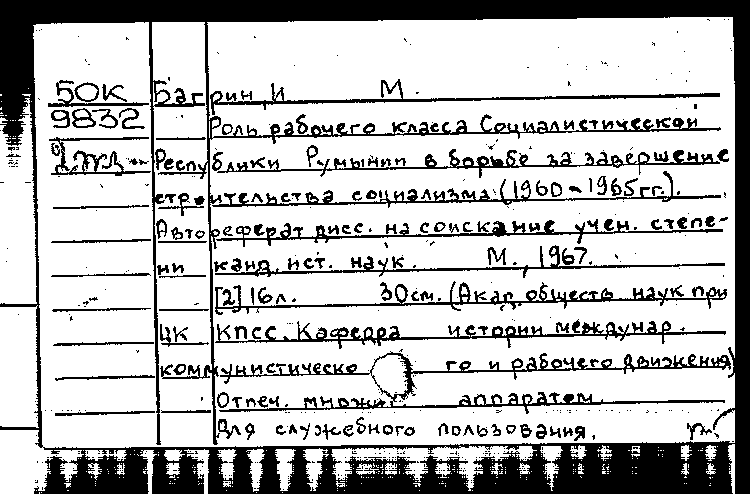 50К Багрин, И М.
9832 Роль рабочего класса Социалистической
Республики Румынии в борьбе за завершение
строительства социализма. (1960-1965гг.).
Автореферат дисс. на соискание учен. степе-
ни канд. ист. наук. М., 1967.
[2], 16л. 30см. (Акад. обществ. наук при
ЦК КПСС. Кафедра истории междунар.
коммунистического и рабочего движения)
Отпеч. множит. аппаратом.
Для служебного пользования.